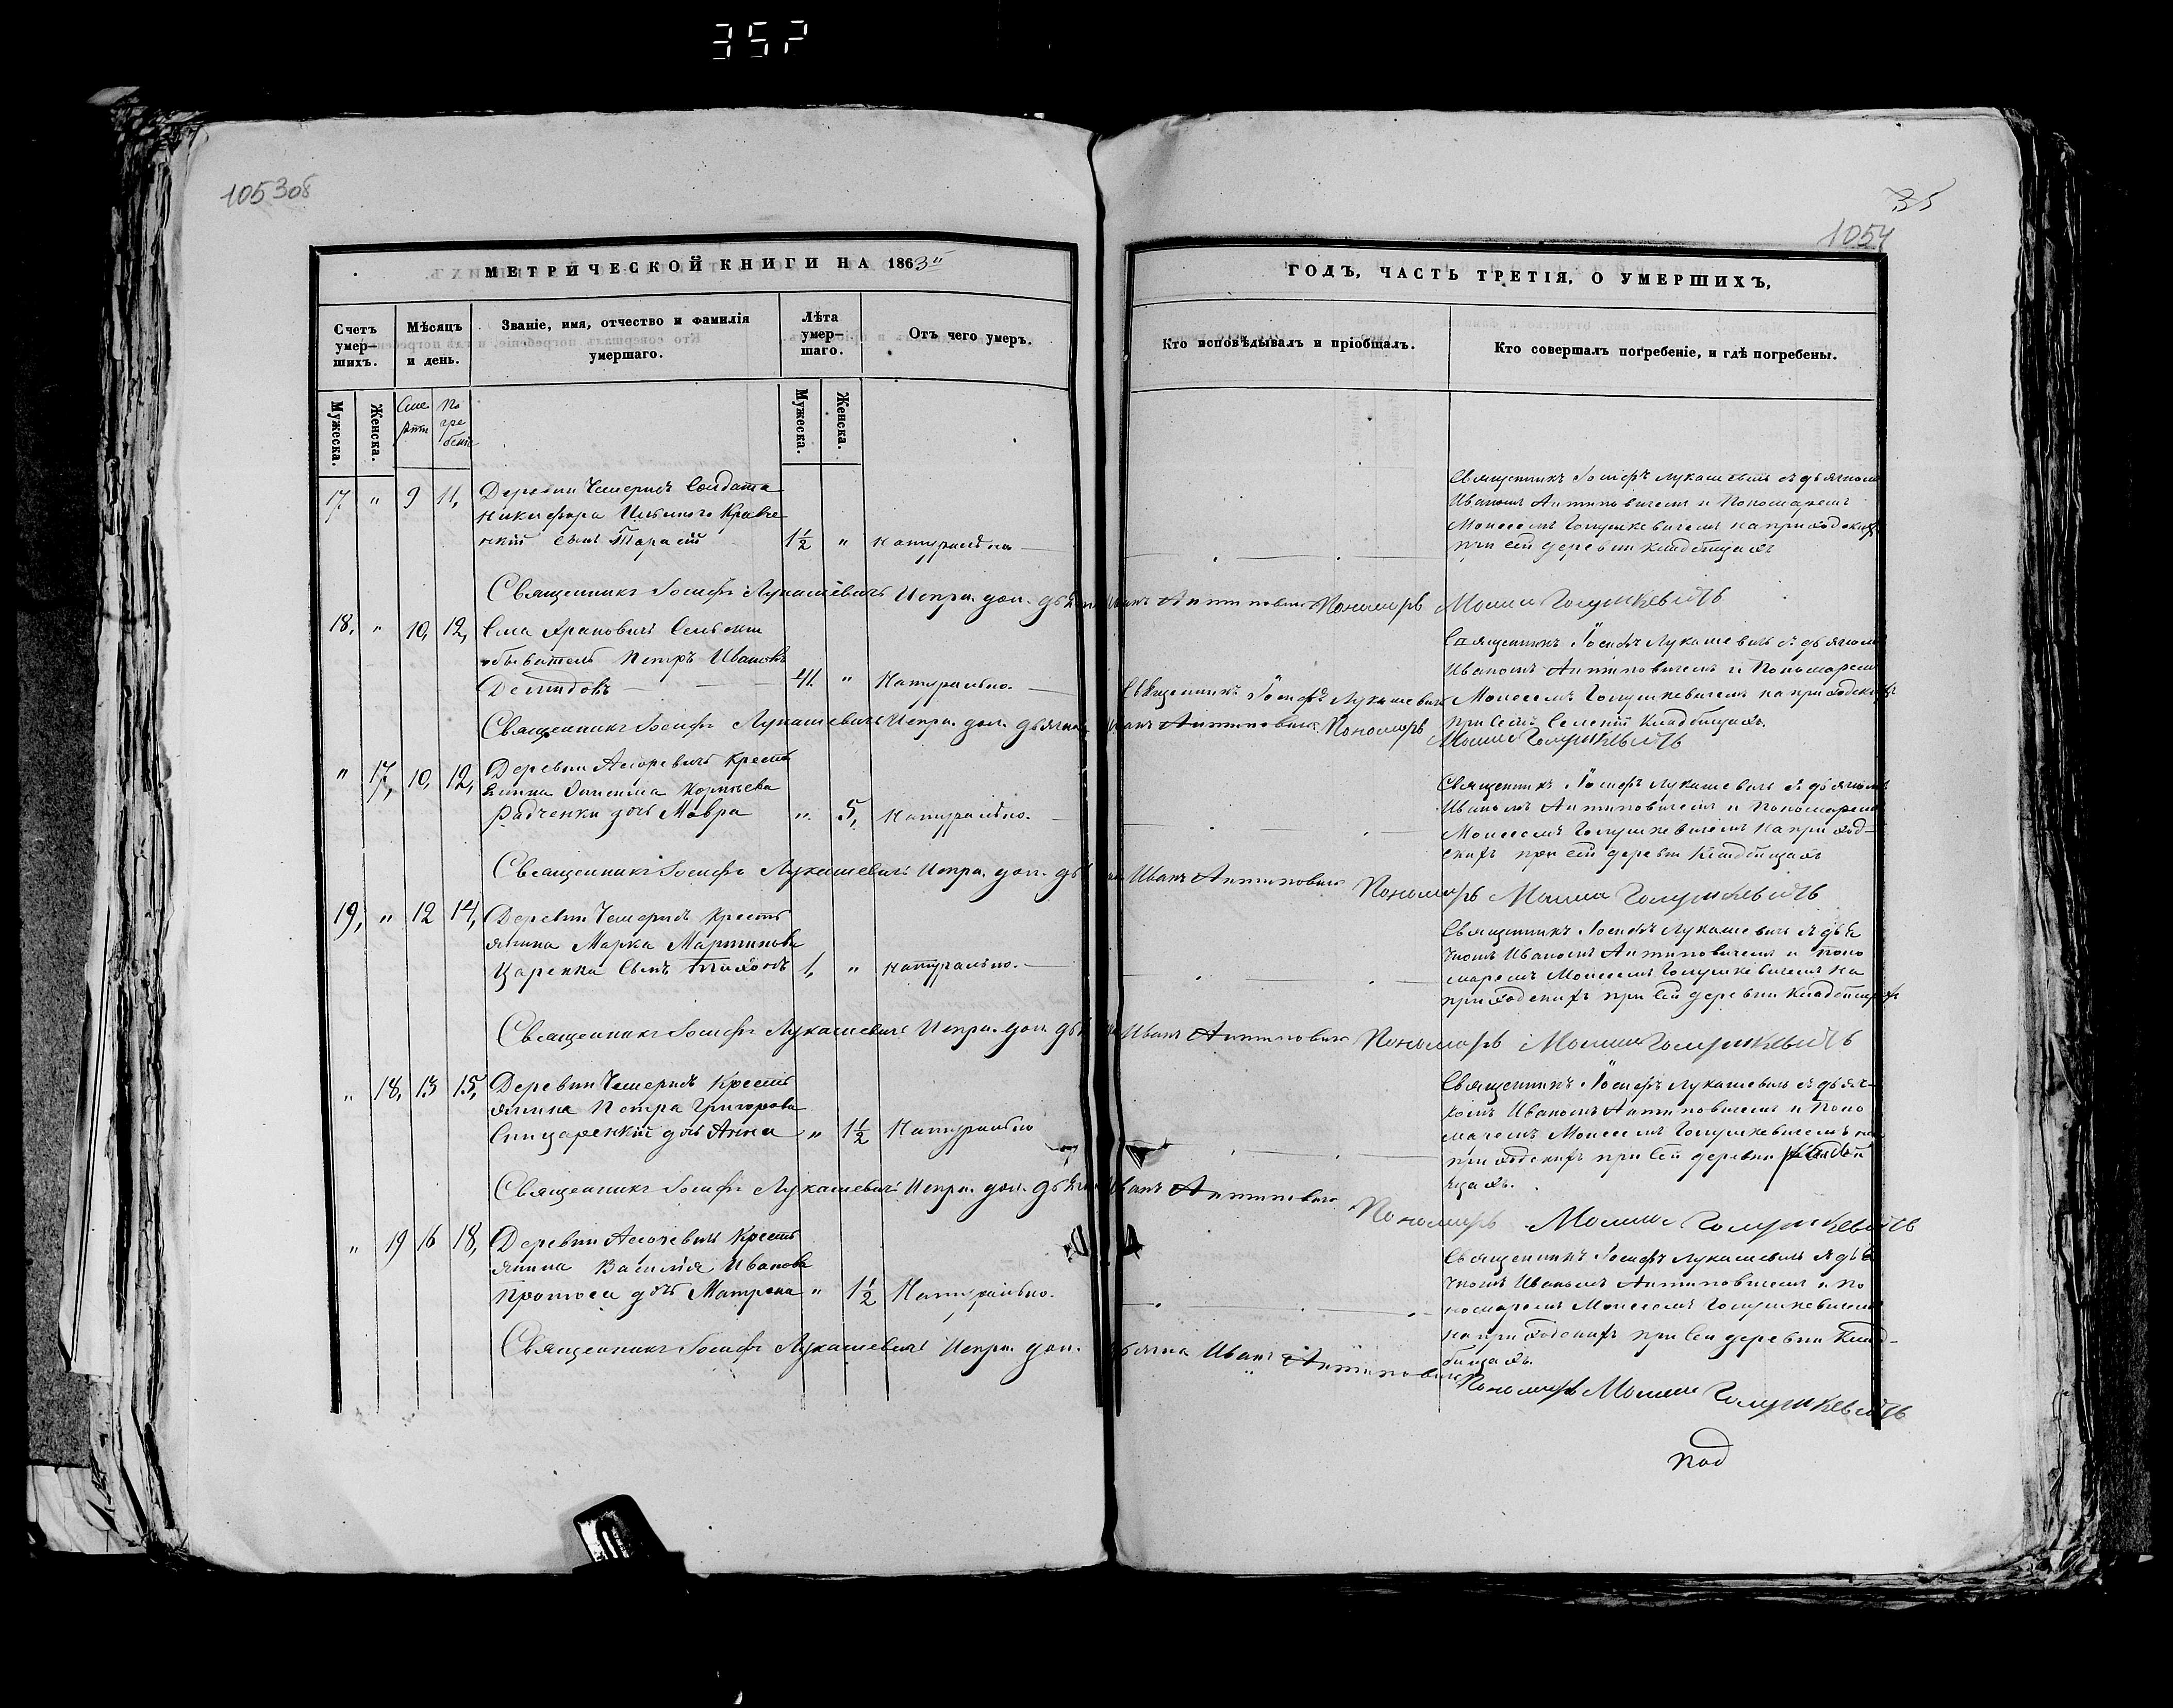 357
105308
35
1054
МЕТРИЧЕСКОЙ КНИГИ НА 1863
ГОДЪ, ЧАСТЬ ТРЕТІЯ, О УМЕРШИХЪ,
Счетъ умер-шихъ.
Мѣсяцъ и день.
Званіе, имя, отчество и фамилія умершаго.
Лѣта умер-шаго.
Отъ чего умеръ.
Кто исповѣдывалъ и пріобщалъ.
Кто совершалъ погребеніе, и гдѣ погребены.
Мужеска.
Женска.
Мужеска.
Женска.
17, " 9 11, Деревни Чемерисъ Солдата
Никифора
сынъ Тарасій 1½ " натурально
Священникъ Іосифъ Лукашевичъ съ дьячкомъ
Иваномъ Антиповичемъ и Пономаремъ
Моисеемъ Голушкевичемъ на приходскихъ
при сей деревни кладбищахъ
Священникъ Іосифъ Лукашевичъ Испр. дол. дьячка Иванъ Антиповичъ Пономарь Моисей Голушкевичъ
18, " 10, 12, Села Храповичъ
обыватель Петръ Ивановъ
Демидовъ 41. " Натурально.
Священникъ Іосифъ Лукашевичъ
Священникъ Іосифъ Лукашевичъ съ дьячкомъ
Иваномъ Антиповичемъ и Пономаремъ
Моисеемъ Голушкевичемъ на приходскихъ
при семъ Селеніи кладбищахъ.
Священникъ Іосифъ Лукашевичъ Испр. дол. дьячка Иванъ Антиповичъ Пономарь Моисей Голушкевичъ
" 17, 10, 12, Деревни Кресть
янина Корнѣева
Радченки дочь Мавра " 5, Натурально.
Священникъ Іосифъ Лукашевичъ съ дьячкомъ
Иваномъ Антиповичемъ и Пономаремъ
Моисеемъ Голушкевичемъ на приход-
скихъ при сей деревни кладбищахъ
Священникъ Іосифъ Лукашевичъ Испр. дол. дьячка Иванъ Антиповичъ Пономарь Моисей Голушкевичъ
19, " 12 14, Деревни Чемерисъ Кресть
янина Марка Мартинова
Царенка сынъ Тихонъ 1, " натурально.
Священникъ Іосифъ Лукашевичъ съ дья
чкомъ Иваномъ Антиповичемъ и Поно
маремъ Моисеемъ Голушкевичемъ на
приходскихъ при сей деревни кладбищахъ
Священникъ Іосифъ Лукашевичъ Испр. дол. дьячка Иванъ Антиповичъ Пономарь Моисей Голушкевичъ
" 18, 13 15, Деревни Чемерисъ Кресть
янина Петра Григорова
дочь Анна " 1½ Натурально
Священникъ Іосифъ Лукашевичъ съ дьяч-
комъ Иваномъ Антиповичемъ и Поно
маремъ Моисеемъ Голушкевичемъ на
приходскихъ при сей деревни кладби
щахъ.
Священникъ Іосифъ Лукашевичъ Испр. дол. дьячка Иванъ Антиповичъ
Пономарь Моисей Голушкевичъ
" 19 16 18, Деревни Кресть
янина Василія Иванова
дочь Матрена " 1½ Натурально.
Священникъ Іосифъ Лукашевичъ съ дья
чкомъ Иваномъ Антиповичемъ и По
номаремъ Моисеемъ Голушкевичемъ
на приходскихъ при сей деревни клад-
бищахъ.
Священникъ Іосифъ Лукашевичъ Испр. дол. дьячка Иванъ Антиповичъ
Пономарь Моисей Голушкевичъ
под